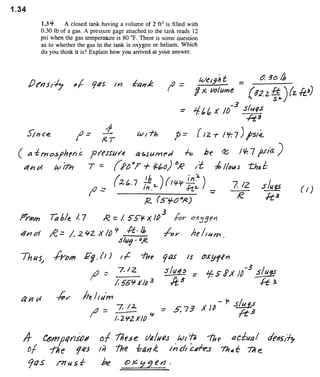 1.34
1.34 A closed tank having a volume of 2 ft³ is filled with
0.30 lb of a gas. A pressure gage attached to the tank reads 12
psi when the gas temperature is 80 °F. There is some question
as to whether the gas in the tank is oxygen or helium. Which
do you think it is? Explain how you arrived at your answer.
Density of gas in tank ρ = weight / (g × volume) = 0.30 lb / (32.2 ft/s²)(2 ft³)
= 4.66 × 10⁻³ slugs/ft³
Since ρ = p/RT with p = (12 + 14.7) psia
(atmospheric pressure assumed to be ≈ 14.7 psia)
and with T = (80°F + 460)°R it follows that
ρ = (26.7 lb/in.²)(144 in²/ft²) / R (540°R) = 7.12/R slugs/ft³ (1)
From Table 1.7 R = 1.554 × 10³ for oxygen
and R = 1.242 × 10⁴ ft·lb/slug·°R for helium.
Thus, from Eq.(1) if the gas is oxygen
ρ = 7.12/1.554×10³ slugs/ft³ = 4.58 × 10⁻³ slugs/ft³
and for helium
ρ = 7.12/1.242×10⁴ = 5.73 × 10⁻⁴ slugs/ft³
A comparison of these values with the actual density
of the gas in the tank indicates that the
gas must be oxygen.